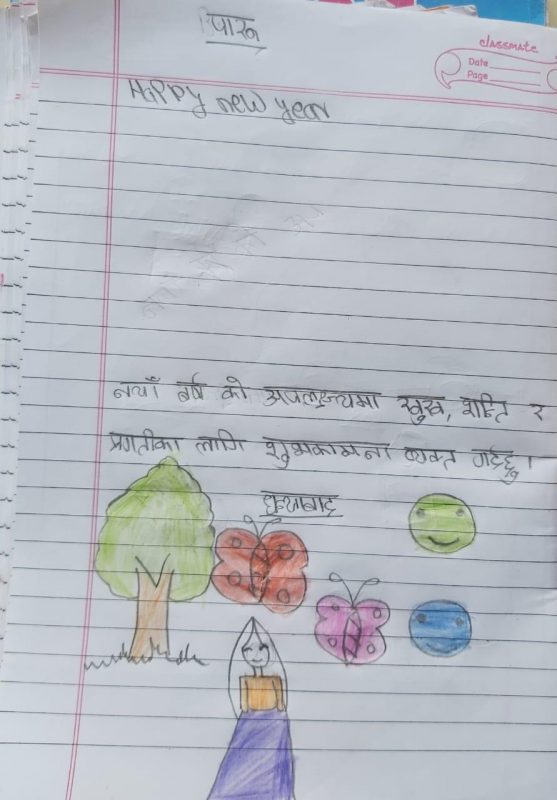 पारू
classmate
Date
Page
Happy new year
नयाँ बर्ष को उपलक्ष्यमा सुख, शान्ति र
प्रगतीका लागि शुभकामना ब्यक्त गर्दछु।
धन्यबाद